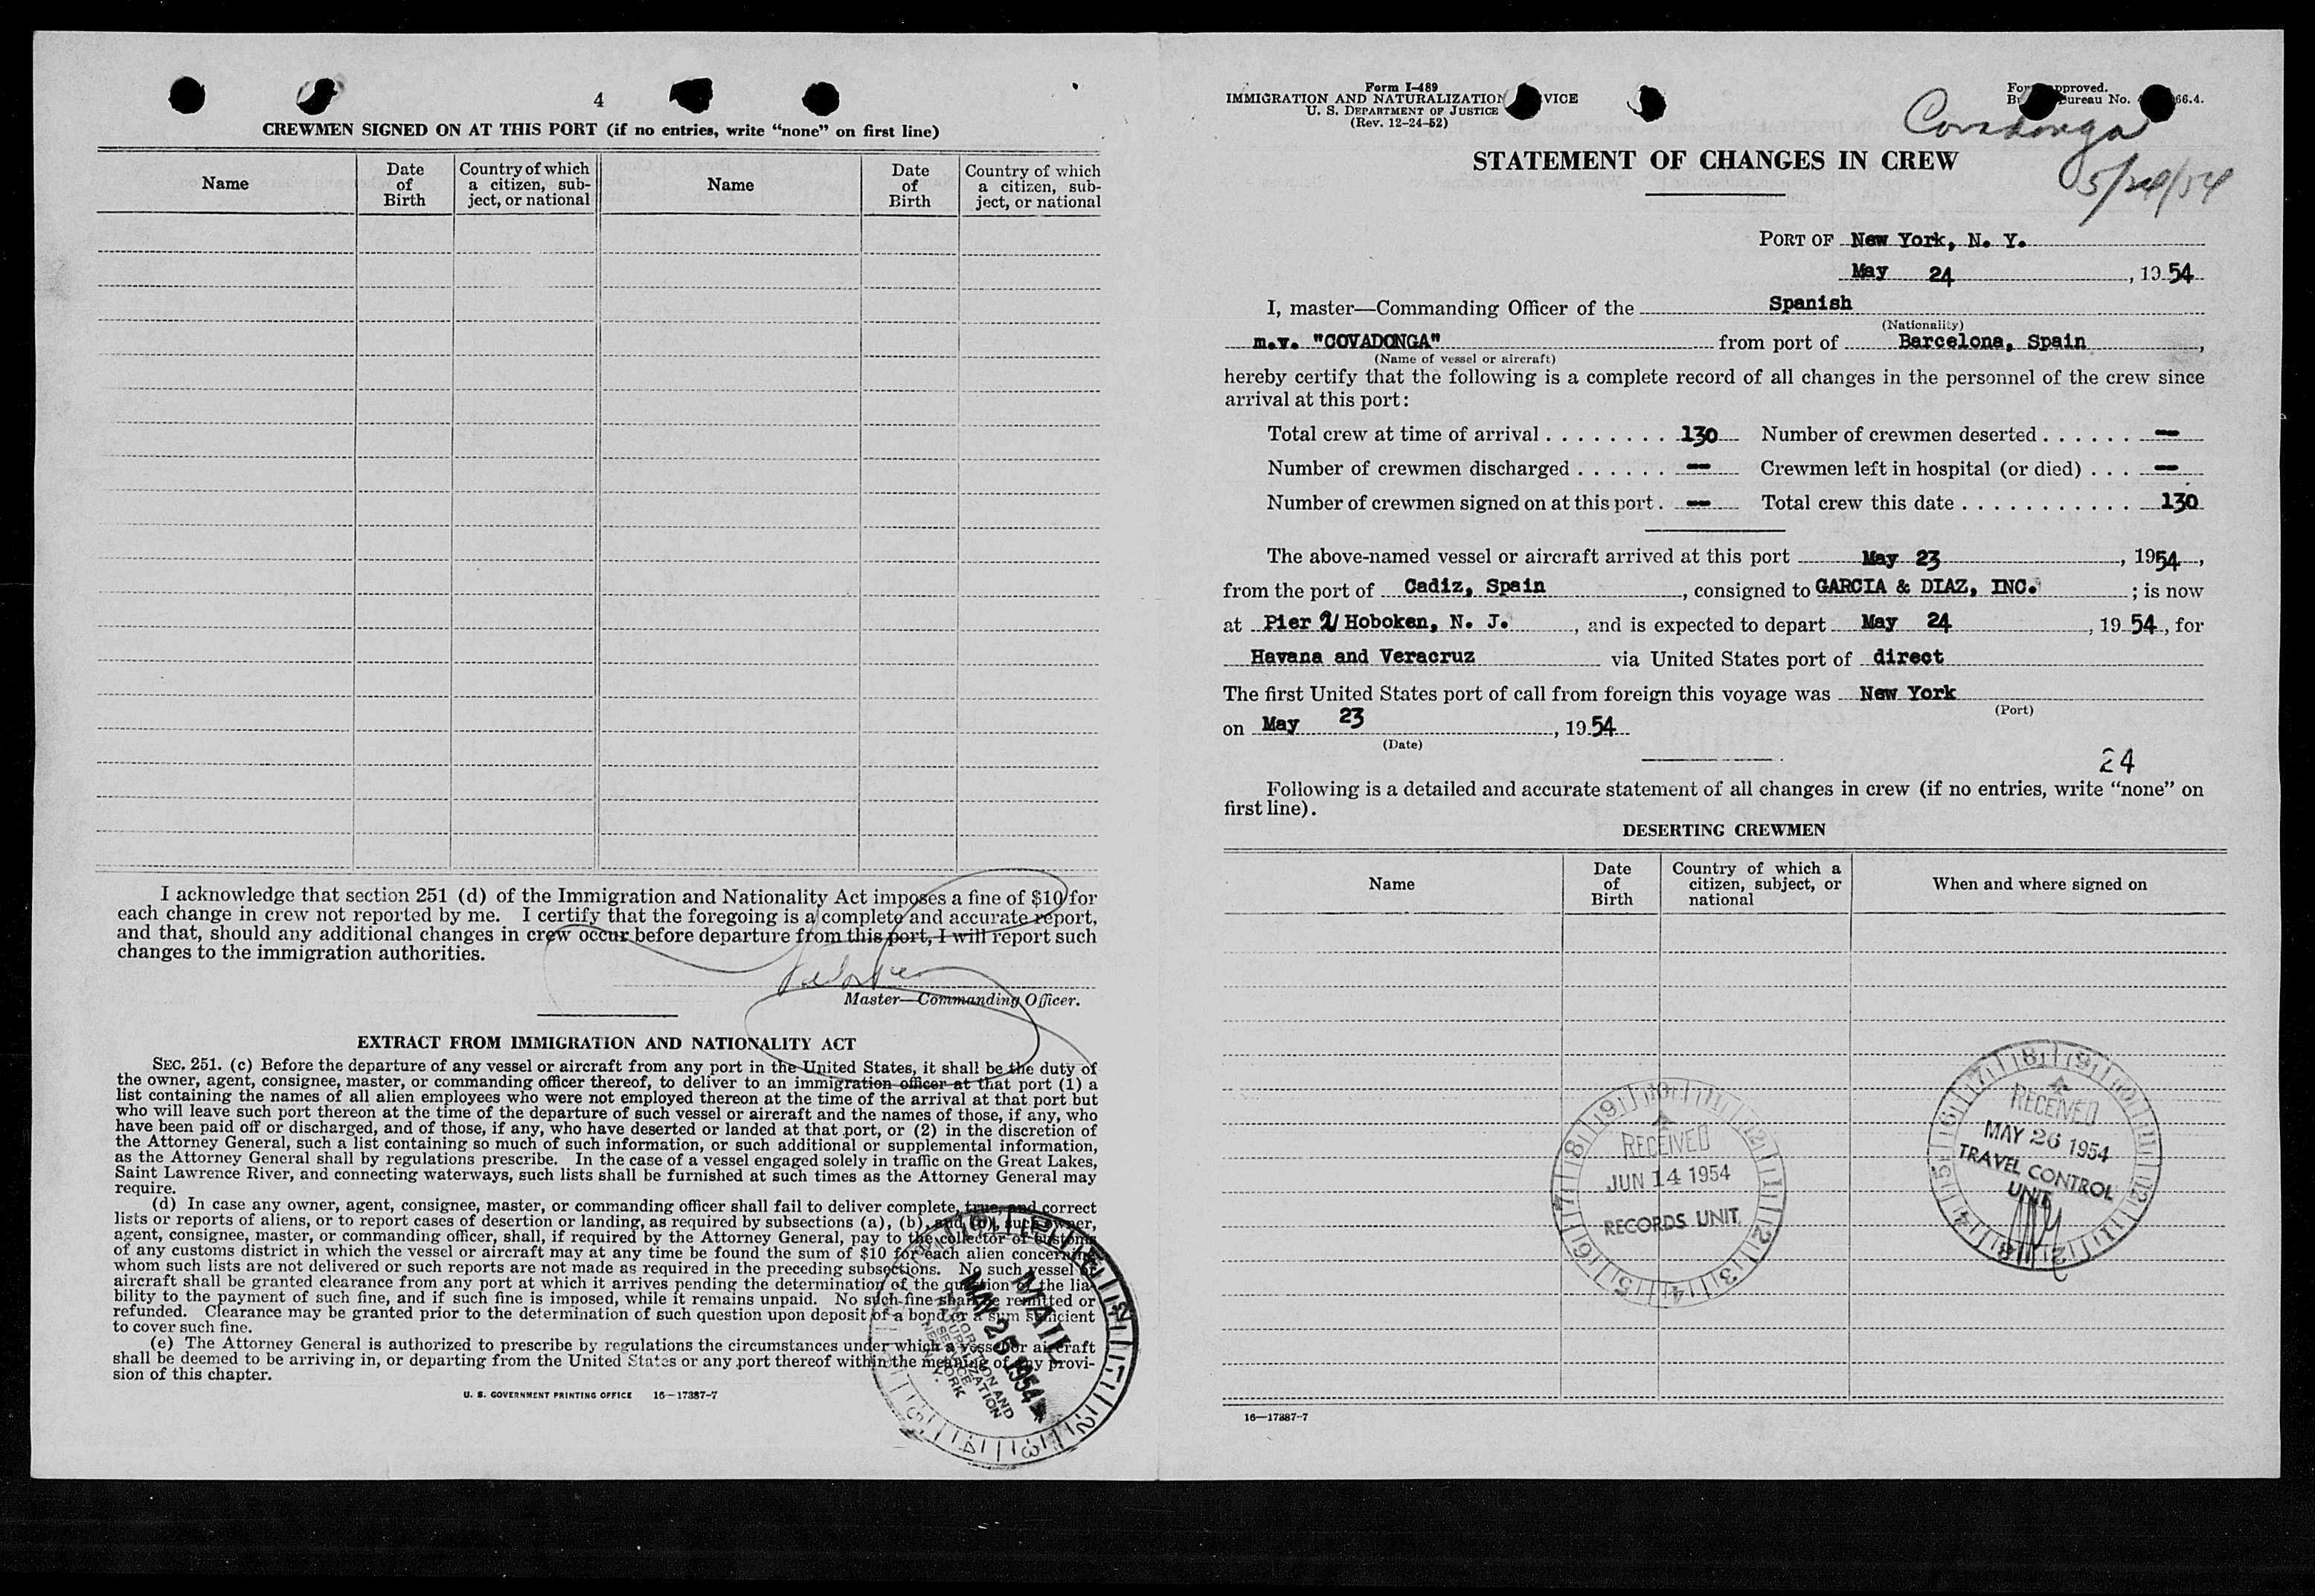 4
CREWMEN SIGNED ON AT THIS PORT (if no entries, write “none” on first line)
Name
Date of Birth
Country of which a citizen, sub-ject, or national
Name
Date of Birth
Country of which a citizen, sub-ject, or national
I acknowledge that section 251 (d) of the Immigration and Nationality Act imposes a fine of $10 for
each change in crew not reported by me. I certify that the foregoing is a complete and accurate report,
and that, should any additional changes in crew occur before departure from this port, I will report such
changes to the immigration authorities.
Master—Commanding Officer.
EXTRACT FROM IMMIGRATION AND NATIONALITY ACT
SEC. 251. (c) Before the departure of any vessel or aircraft from any port in the United States, it shall be the duty of
the owner, agent, consignee, master, or commanding officer thereof, to deliver to an immigration officer at that port (1) a
list containing the names of all alien employees who were not employed thereon at the time of the arrival at that port but
who will leave such port thereon at the time of the departure of such vessel or aircraft and the names of those, if any, who
have been paid off or discharged, and of those, if any, who have deserted or landed at that port, or (2) in the discretion of
the Attorney General, such a list containing so much of such information, or such additional or supplemental information,
as the Attorney General shall by regulations prescribe. In the case of a vessel engaged solely in traffic on the Great Lakes,
Saint Lawrence River, and connecting waterways, such lists shall be furnished at such times as the Attorney General may
require.
(d) In case any owner, agent, consignee, master, or commanding officer shall fail to deliver complete, true, and correct
lists or reports of aliens, or to report cases of desertion or landing, as required by subsections (a), (b), and (c), such owner,
agent, consignee, master, or commanding officer, shall, if required by the Attorney General, pay to the collector of customs
of any customs district in which the vessel or aircraft may at any time be found the sum of $10 for each alien concerning
whom such lists are not delivered or such reports are not made as required in the preceding subsections. No such vessel or
aircraft shall be granted clearance from any port at which it arrives pending the determination of the question of the lia-
bility to the payment of such fine, and if such fine is imposed, while it remains unpaid. No such fine shall be remitted or
refunded. Clearance may be granted prior to the determination of such question upon deposit of a bond or a sum sufficient
to cover such fine.
(e) The Attorney General is authorized to prescribe by regulations the circumstances under which a vessel or aircraft
shall be deemed to be arriving in, or departing from the United States or any port thereof within the meaning of any provi-
sion of this chapter.
U. S. GOVERNMENT PRINTING OFFICE 16—17387-7
MAIL
MAY 26 1954
IMMIGRATION AND
NATURALIZATION
SERVICE
NEW YORK
N.Y.
Form I-489
IMMIGRATION AND NATURALIZATION VICE
U. S. DEPARTMENT OF JUSTICE
(Rev. 12-24-52)
pproved.
Bureau No. 66.4.
Covadonga
5/24/54
STATEMENT OF CHANGES IN CREW
PORT OF New York, N. Y.
May 24, 1954
I, master—Commanding Officer of the Spanish
(Nationality)
m.v. "COVADONGA" from port of Barcelona, Spain,
(Name of vessel or aircraft)
hereby certify that the following is a complete record of all changes in the personnel of the crew since
arrival at this port:
Total crew at time of arrival . . . . . . . . 130 Number of crewmen deserted . . . . . . —
Number of crewmen discharged . . . . . . — Crewmen left in hospital (or died) . . . —
Number of crewmen signed on at this port . — Total crew this date . . . . . . . . . . . 130
The above-named vessel or aircraft arrived at this port May 23, 1954,
from the port of Cadiz, Spain, consigned to GARCIA & DIAZ, INC. ; is now
at Pier 2 Hoboken, N. J., and is expected to depart May 24, 1954, for
Havana and Veracruz via United States port of direct
The first United States port of call from foreign this voyage was New York
(Port)
on May 23, 1954
(Date)
24
Following is a detailed and accurate statement of all changes in crew (if no entries, write “none” on
first line).
DESERTING CREWMEN
Name
Date of Birth
Country of which a citizen, subject, or national
When and where signed on
RECEIVED
JUN 14 1954
RECORDS UNIT
RECEIVED
MAY 26 1954
TRAVEL CONTROL
UNIT
16—17387-7